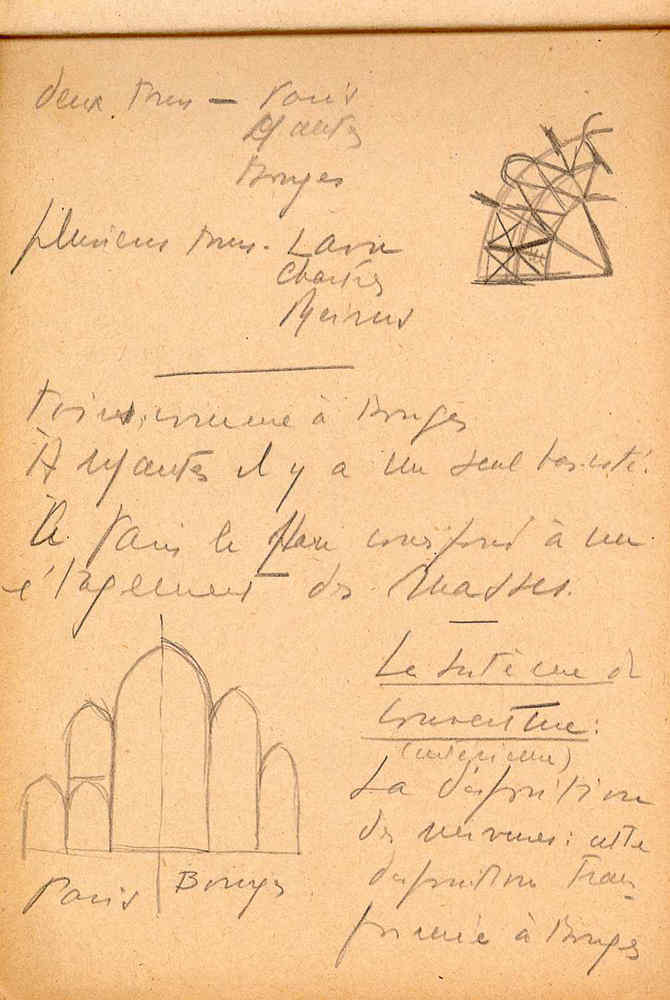 deux tours — Paris
Mantes
Bourges
plusieurs tours. Laon
Chartres
Reims
à Bourges
À Mantes il y a un seul bas-côté.
À Paris le plan correspond à un
étagement des masses.
Le système de
couverture:
(intérieur)
La disposition
des nervures: cette
disposition trans-
formée à Bourges
Paris Bourges